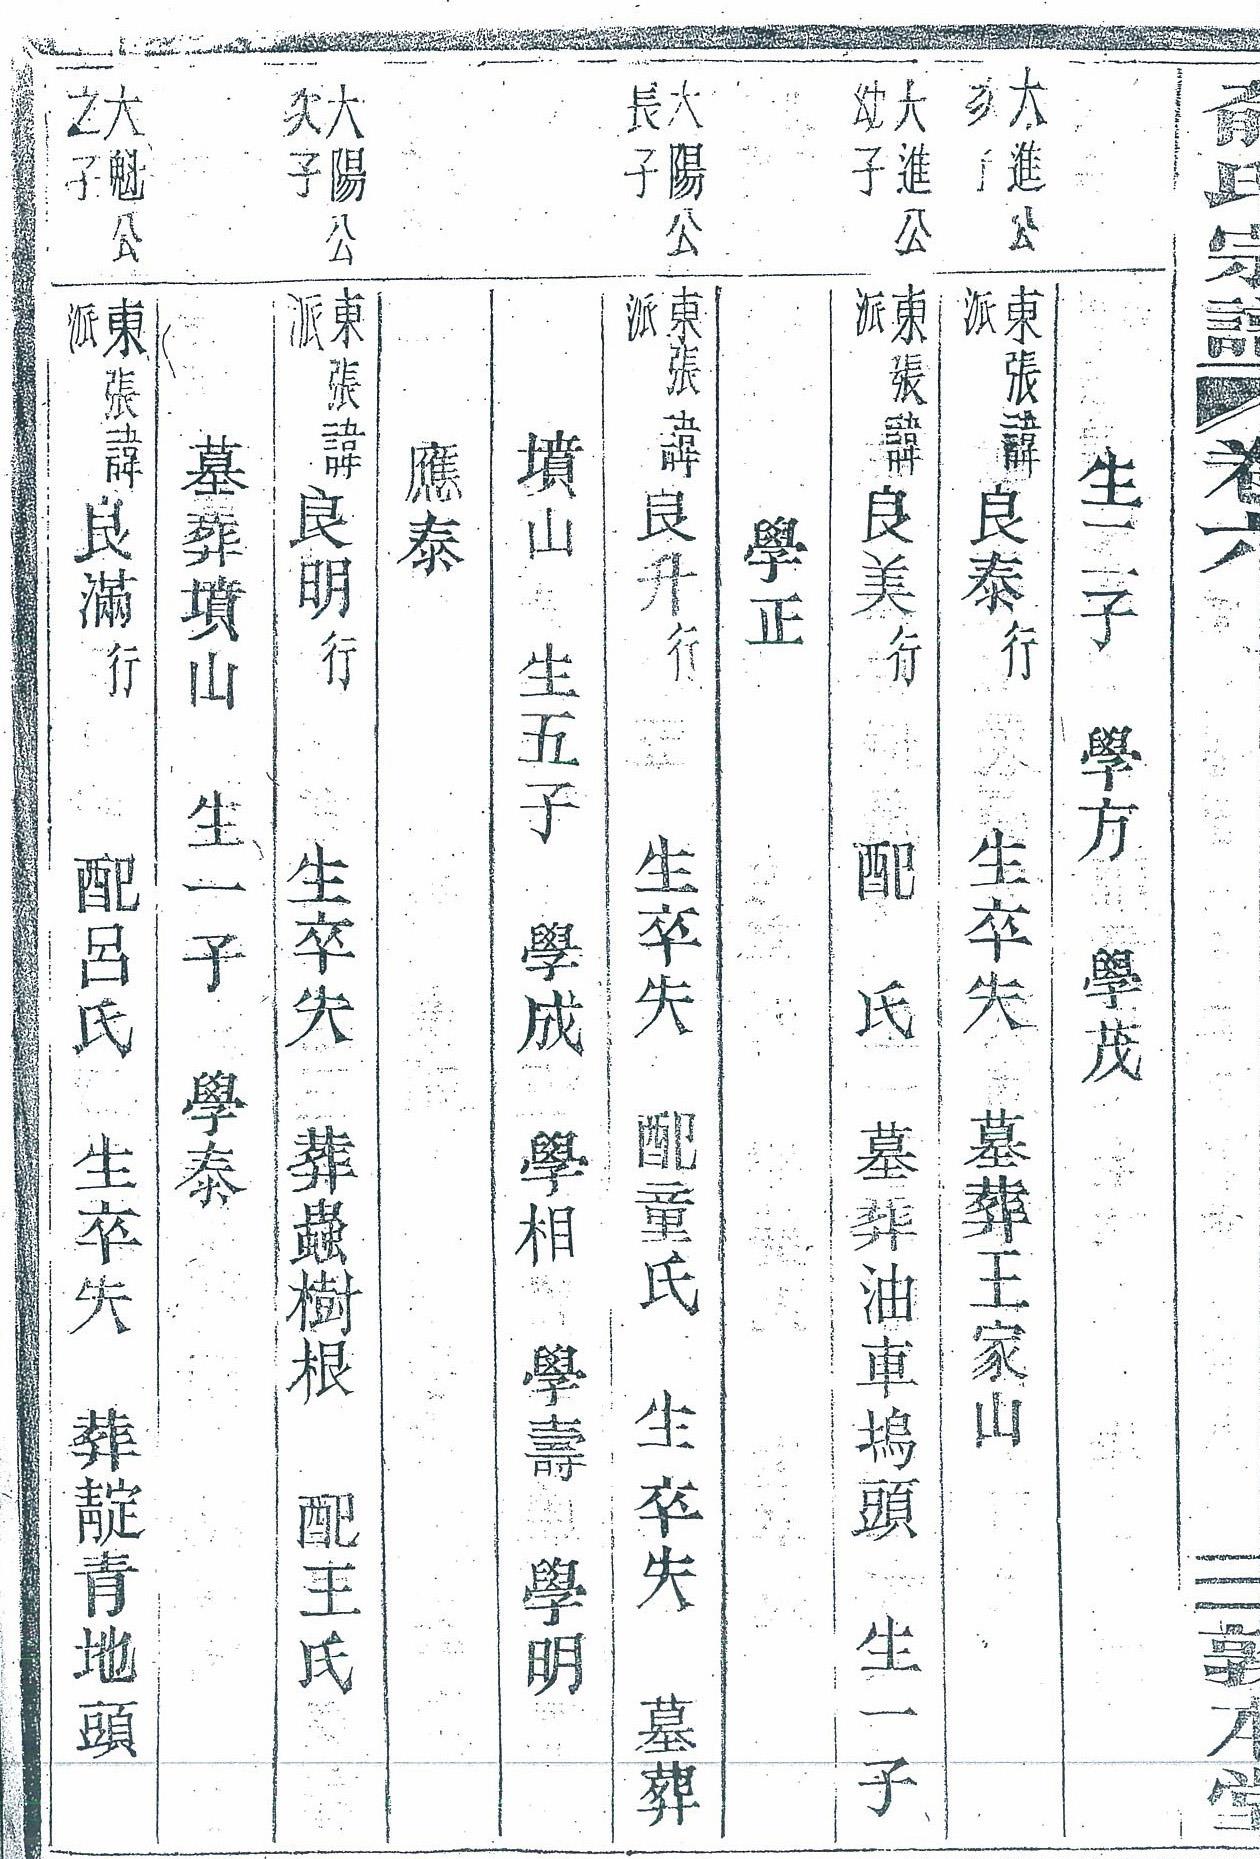 氏宗譜 卷六 三 敦本堂
生二子 學方 學茂
大進公 子 東張派 諱良泰行 生卒失 墓葬王家山
大進公幼子 東張派 諱良美行 配 氏 墓葬油車塢頭 生一子
學正
大陽公長子 東張派 諱良升行 生卒失 配童氏 生卒失 墓葬
墳山 生五子 學成 學相 學壽 學明
應泰
大陽公次子 東張派 諱良明行 生卒失 葬蟲樹根 配王氏
墓葬墳山 生一子 學泰
大魁公之子 東張派 諱良滿行 配呂氏 生卒失 葬靛青地頭